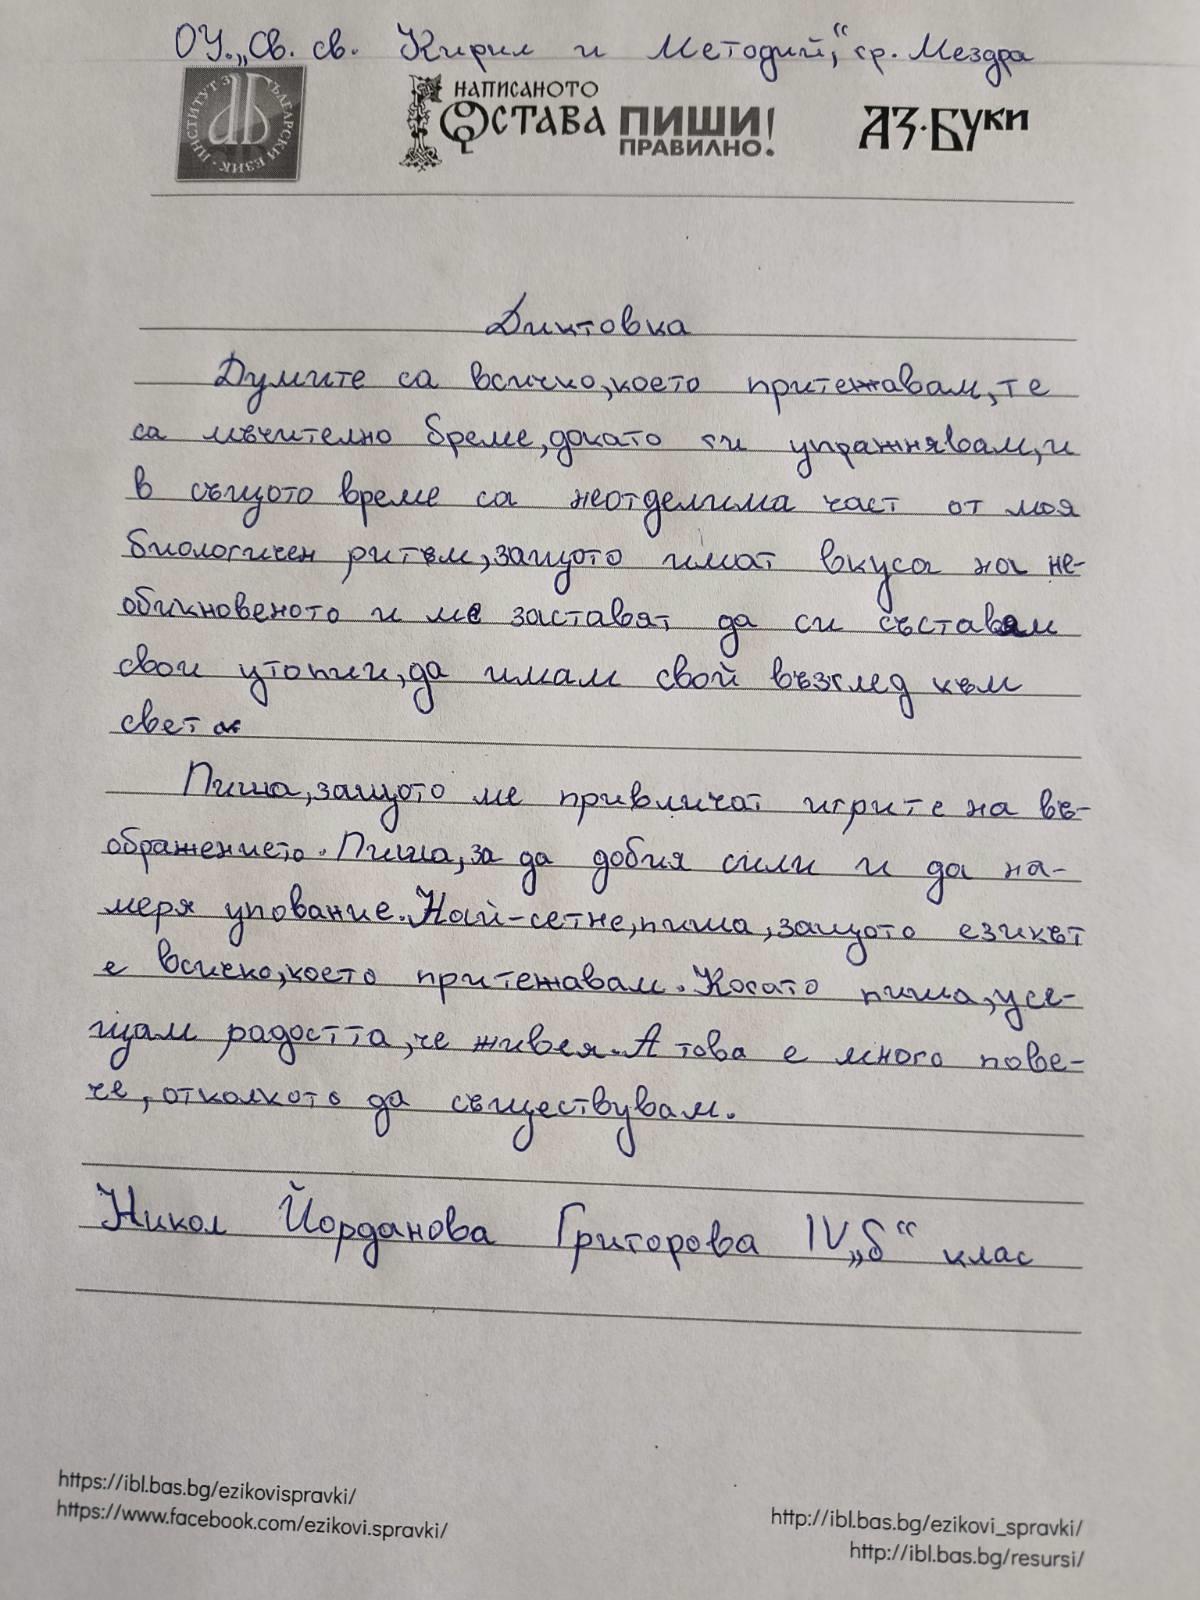 ОУ „Св. св. Кирил и Методий“, гр. Мездра
ИНСТИТУТ ЗА БЪЛГАРСКИ ЕЗИК
НАПИСАНОТО
ОСТАВА
ПИШИ
ПРАВИЛНО!
АЗ·БУКИ
Диктовка
Думите са всичко, което притежавам, те
са мъчително бреме, докато ги упражнявам, и
в същото време са неотделима част от моя
биологичен ритъм, защото имат вкуса на не-
обикновеното и ме заставят да си съставям
свои утопии, да имам свой възглед към
света.
Пиша, защото ме привличат игрите на въ-
ображението. Пиша, за да добия сили и да на-
меря упование. Най-сетне, пиша, защото езикът
е всичко, което притежавам. Когато пиша, усе-
щам радостта, че живея. А това е много пове-
че, отколкото да съществувам.
Никол Йорданова Григорова IV „б“ клас
https://ibl.bas.bg/ezikovispravki/
https://www.facebook.com/ezikovi.spravki/
http://ibl.bas.bg/ezikovi_spravki/
http://ibl.bas.bg/resursi/